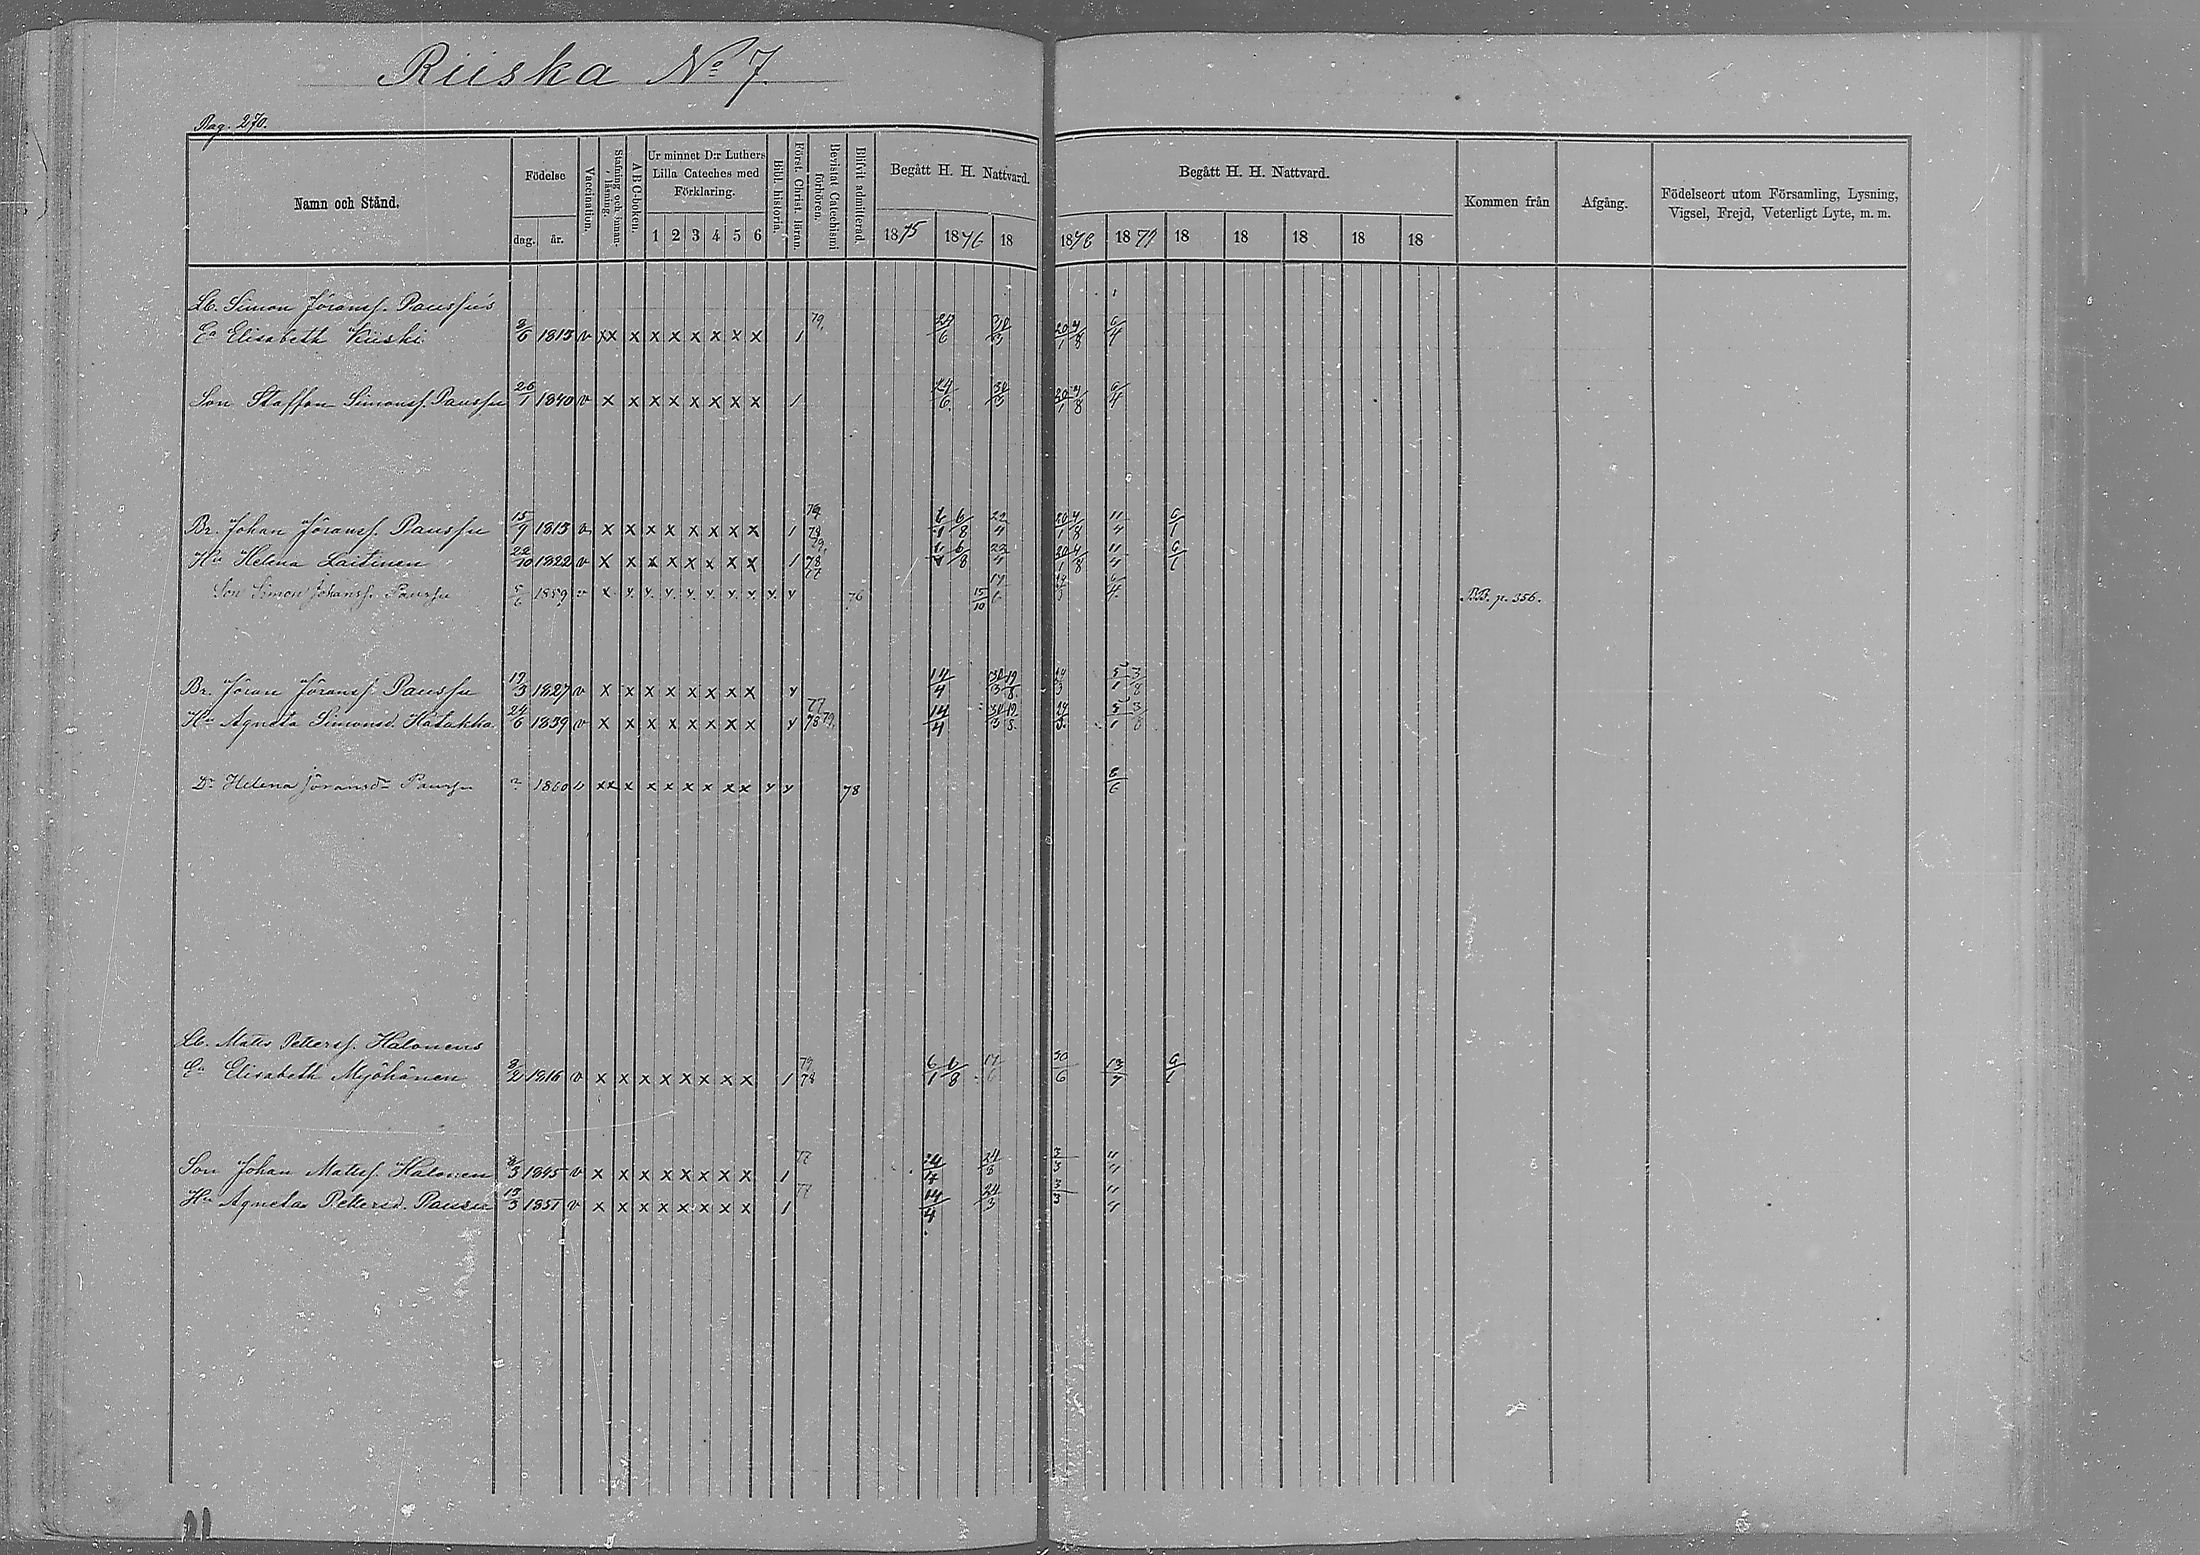 Riiska No 7.
Pag. 270.
Namn och Stånd. Födelse dag. år. Vaccination. Stafning och innanläsning. A B C-boken. Ur minnet D:r Luthers Lilla Cateches med Förklaring. 1 2 3 4 5 6 Bibl. historia. Först. Christ. läran. Bevistat Catechismi förhören. Blifvit admitterad. Begått H. H. Nattvard. 1875 1876 18
Begått H. H. Nattvard. 1878 1879 18 18 18 18 18 Kommen från Afgång. Födelseort utom Församling, Lysning, Vigsel, Frejd, Veterligt Lyte, m. m.
Lb. Simon Jöranss. Paussu's
Ea Elisabeth Kiiski 1815 v xx x x x x x x x 1 79. 24/6 20/1 4/8 6/4
Son Staffan Simonss. Paussu 26/1 1840 v x x x x x x x x 1 24/6 30/3 20/1 4/8 6/4
Br. Johan Jöranss. Paussu 15/9 1813 v x x x x x x x x 1 79 78 6/1 6/8 22/4 20/1 4/8 11/4 6/1
Hu Helena Laitinen 22/10 1822 v x x x x x x x x 1 79. 78 77 6/1 6/8 22/4 20/1 4/8 11/4 6/1
Son Simon Johanss. Paussu 5/6 1859 v x 76 15/10 17/6 6/4 BB. p. 356.
Br. Jöran Jöranss. Paussu 19/3 1827 v x x x x x x x x 14/4 30/3 19/8 24/3 5/1 3/8
Hu Agneta Simonsd. Hatakka 24/6 1839 v x x x x x x x x 77 78 79. 14/4 30/3 19/8 24/3 5/1 3/8
Dr Helena Jöransdr Paussu 1860 v xx x x x x x x x 78 8/6
Lb. Matts Petterss. Halonens
Ea Elisabeth Myöhänen 3/2 1816 v x x x x x x x x 1 79 78 6/1 6/8 17/6 30/6 13/4 6/1
Son Johan Mattss. Halonen 1845 v x x x x x x x x 1 77 14/4 24/3 3/3 11/4
Hu Agneta Pettersd. Paussu 13/3 1851 v x x x x x x x x 1 77 14/4 24/3 3/3 11/4